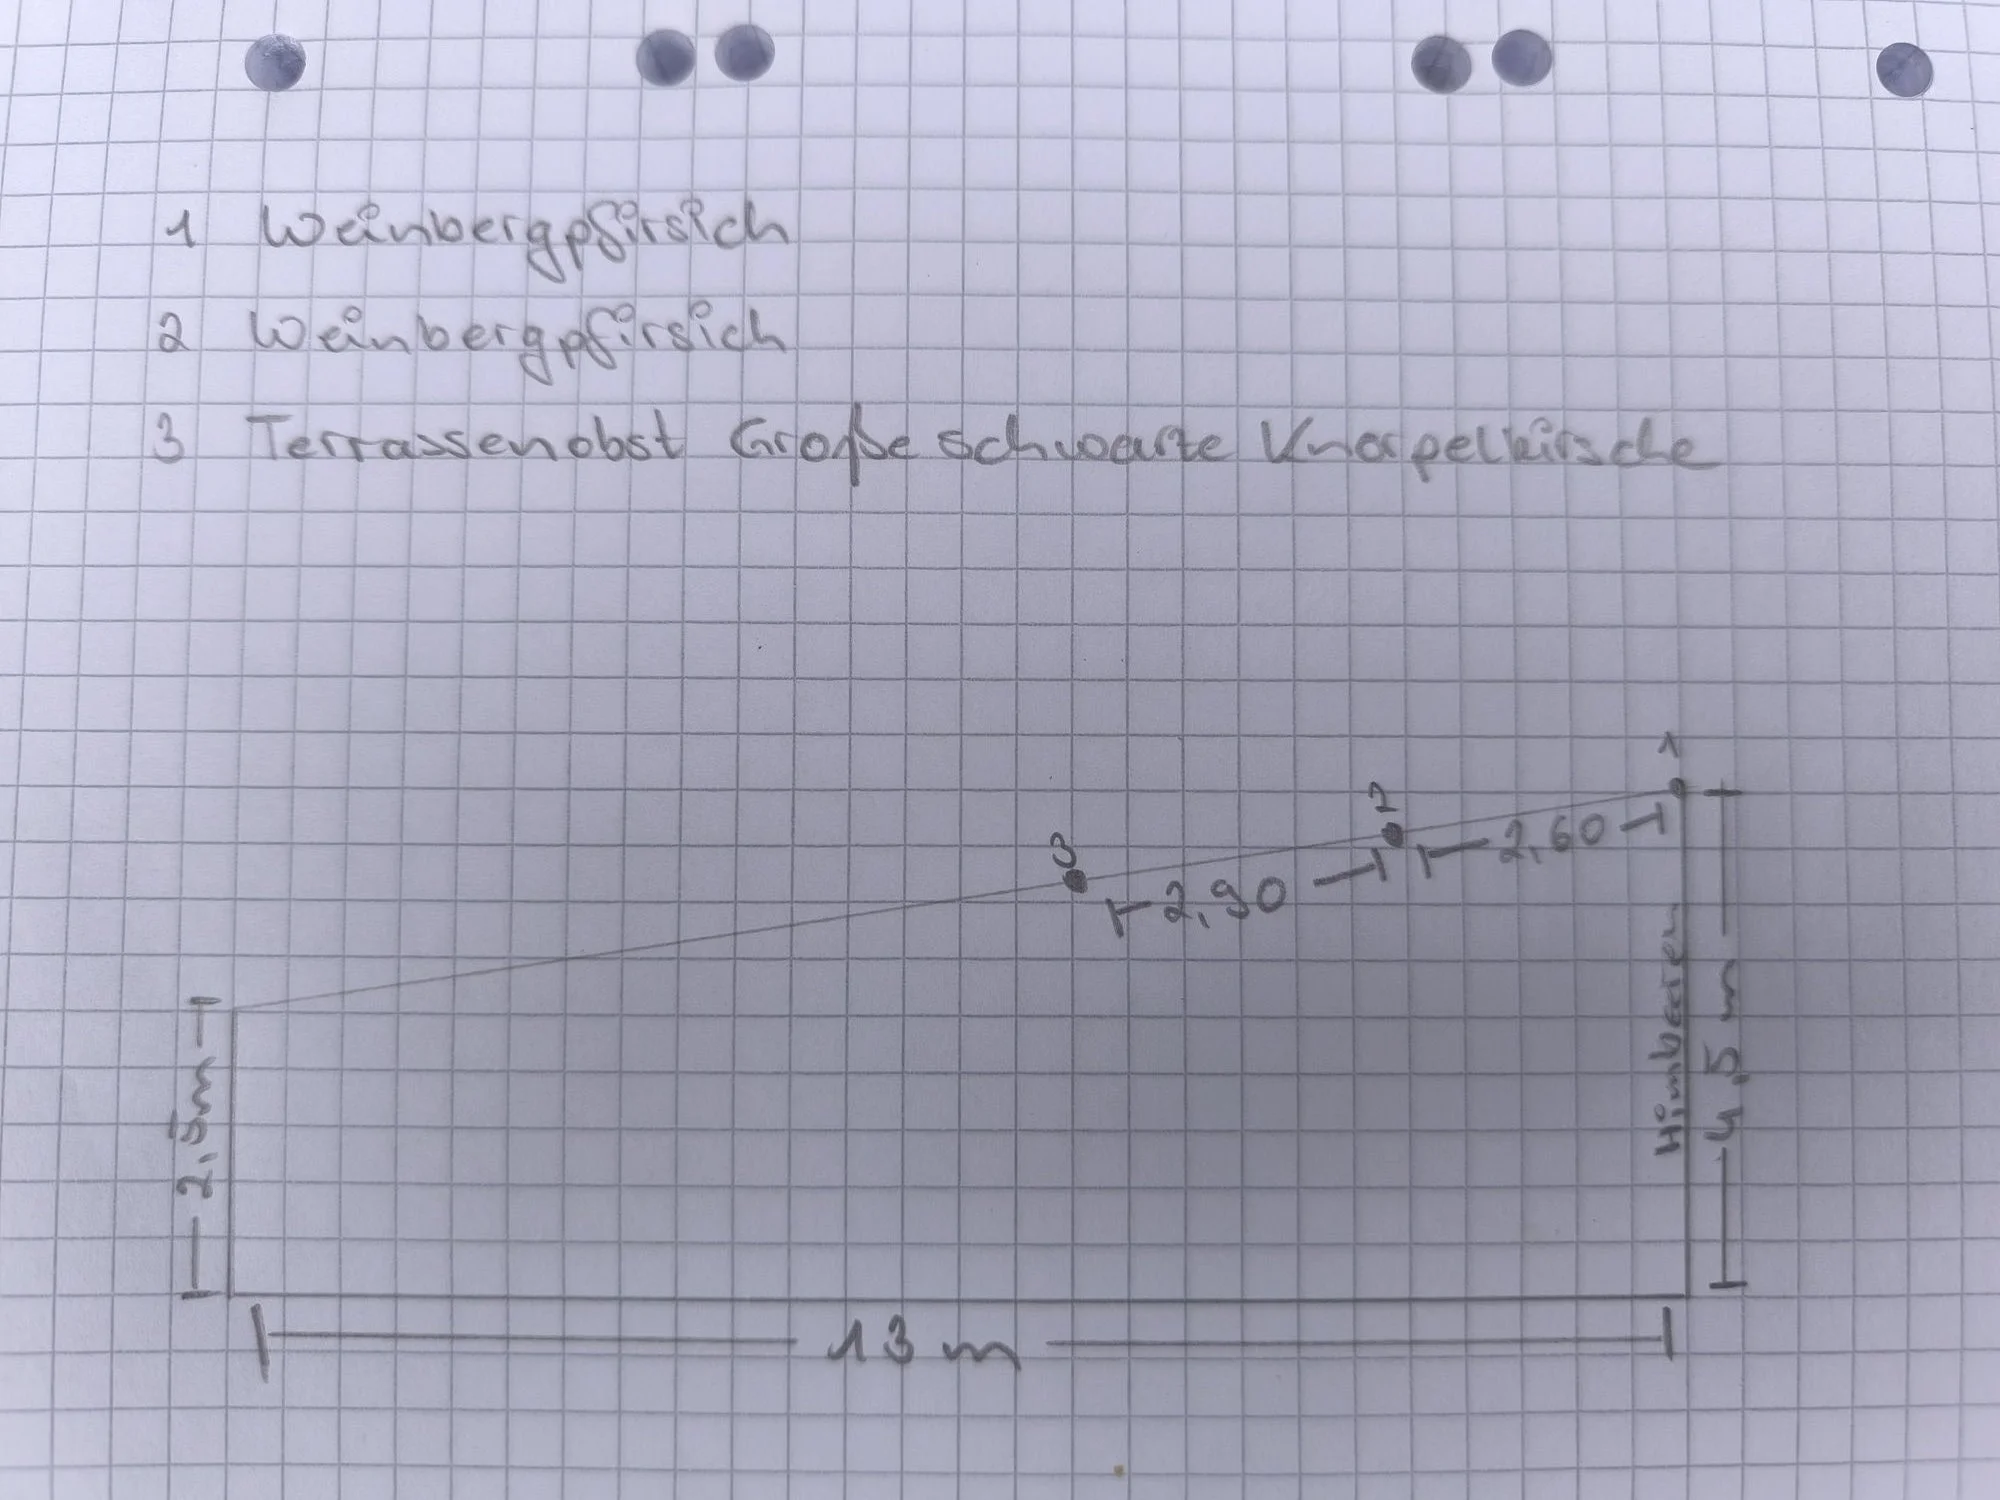 1 Weinbergpfirsich
2 Weinbergpfirsich
3 Terrassenobst Große schwarze Knorpelkirsche
1
2
3
2,60
2,90
Himbeeren
4,5 m
2,5m
13 m